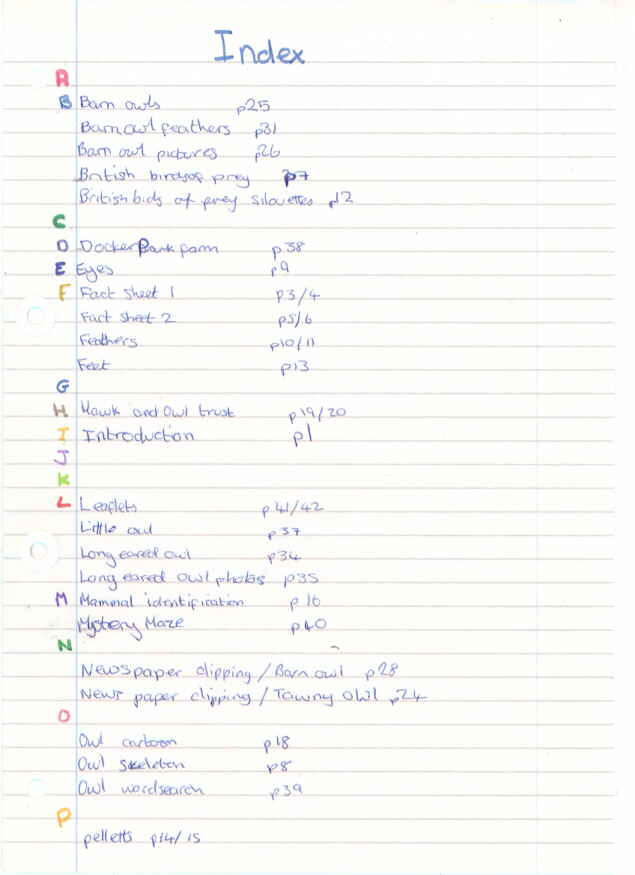 Index
A
B Barn owls p25
Barn owl feathers p31
Barn owl pictures p26
British birds of prey p7
British bids of prey silouettes p12
C
D Docker Bank farm p38
E Eyes p9
F Fact sheet 1 p3/4
Fact sheet 2 p5/6
Feathers p10/11
Feet p13
G
H Hawk and Owl trust p19/20
I Introduction p1
J
K
L Leaflets p41/42
Little owl p37
Long eared owl p34
Long eared owl photos p35
M Mammal identification p16
Mystery Maze p40
N
Newspaper clipping/Barn owl p28
News paper clipping/Tawny Owl p24
O
Owl cartoon p18
Owl skeleton p8
Owl wordsearch p39
P
pelletts p14/15